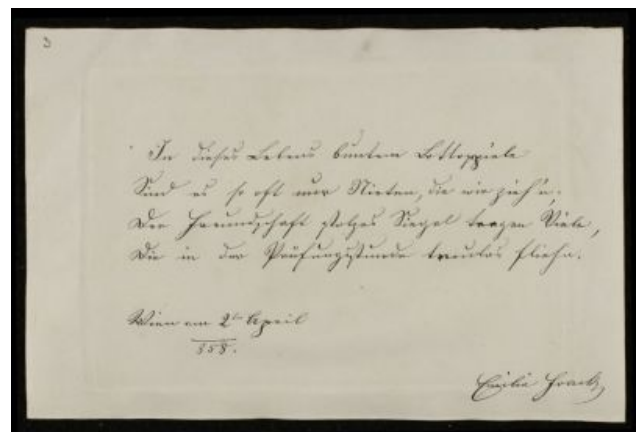 3
In dieses Lebens buntem Lottospiele
Sind es so oft nur Nieten, die wir zieh'n,
Der Freundschaft stolzes Siegel tragen Viele,
Die in der Prüfungsstunde treulos flieh'n.
Wien am 2ten April
858.
Emilie